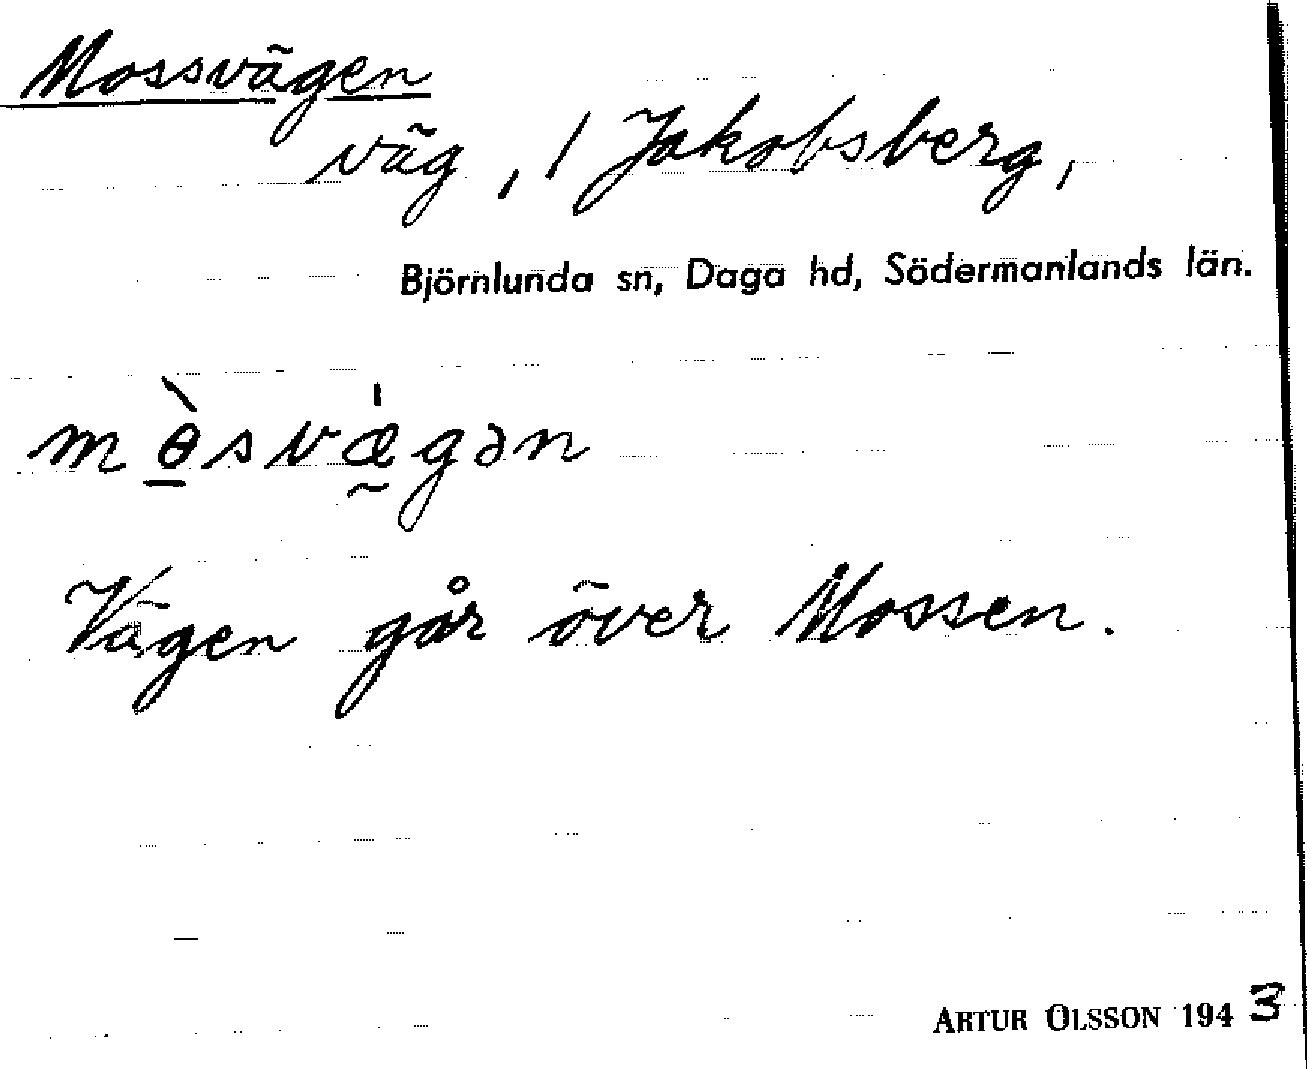 Mossvägen
väg, / Jakobsberg,
Björnlunda sn, Daga hd, Södermanlands län.
mɵ̠̀svæ̰̍gən
Vägen går över Mossen.
ARTUR OLSSON 1943